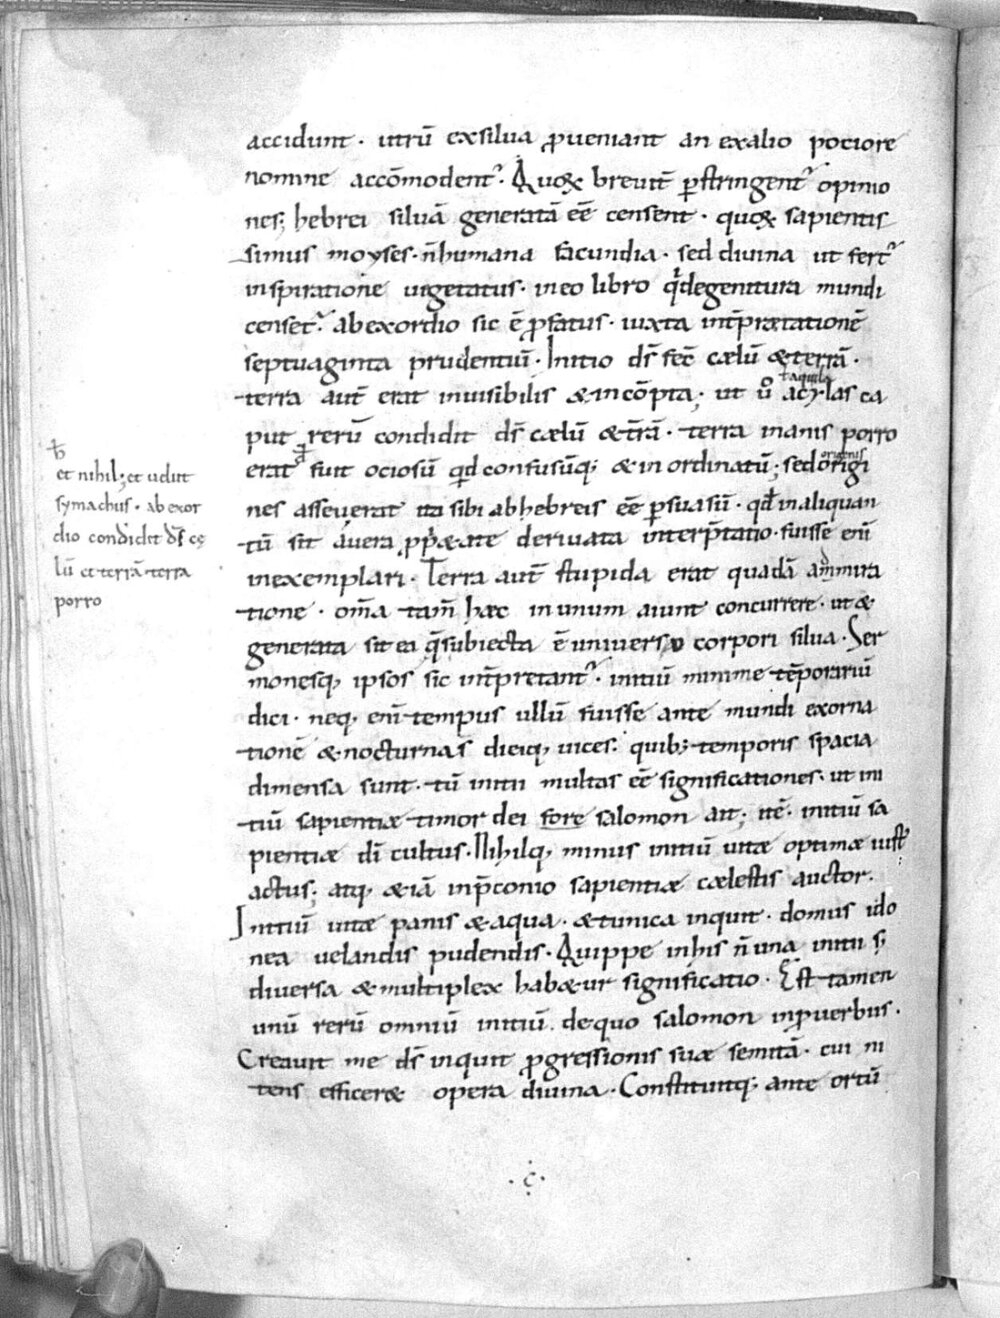 accidunt · utrũ exsilua ꝓueniant an exalio pociore
nomine accõmodent᷑. Quoꝝ breuit̃ ꝑstringent᷑ opinio
nes; hebrei siluã generatã eẽ censent · quoꝝ sapientis
simus moyses · ñ humana facundia · sed diuina ut fert᷑
inspiratione uigetatus · ineo libro qͥ degenitura mundi
censet᷑. abexordio sic ẽ p̃fatus · iuxta int̃prætationẽ
septuaginta prudentiũ · Initio ds̃ fec̃ cælũ &terrã ·
terra aut̃ erat inuisibilis &incõpta; ut uͦ acylas ca
ł aquila
put rerũ condidit ds̃ cælũ &t̃rã · terra inanis porro
erat fuit ociosũ qͥd confusũq; &in ordinatũ; sed origi
originis
nes asseuerat ita sibi abhebreis eẽ ꝑsuasũ · qđ inaliquan
tũ sit auera ꝓp̃&ate deriuata interp̃tatio · fuisse eni̅
inexemplari · Terra aut̃ stupida erat quadã am̃mira
tione · om̃a tam̃ hæc inunum aiunt concurrere · ut &
generata sit ea q̃ subiecta ẽ uniuerso corpori silua · Ser
monesq; ipsos sic int̃pretant᷑. initiũ minime tẽporariũ
dici · neq; eni̅ tempus ullũ fuisse ante mundi exorna
tionẽ &nocturnas dieiq; uices: quib; temporis spacia
dimensa sunt · tũ initii multas eẽ significationes · ut ini
tiũ sapientiæ timor dei fore salomon ait; itẽ · initiũ sa
pientiæ di̅ cultus · Nihilq; minus initiũ uitæ optimæ iusti
actus; atq; &iã inp̃conio sapientiæ cælestis auctor.
Initiũ uitæ panis &aqua · &tunica inquit · domus ido
nea uelandis pudendis · Quippe inhis ñ una initii s;
diuersa &multiplex hab&ur significatio · Est tamen
unũ rerũ omniũ initiũ. dequo salomon inꝓuerbiis ·
Creauit me ds̃ inquit ꝓgressionis suæ semitã · cui ni
tens efficer& opera diuina · Constituitq; ante ortũ
ł
et nihil; et uidit
symachus · ab exor
dio condidit ds̃ cę
lũ et terrã terra
porro
· c ·